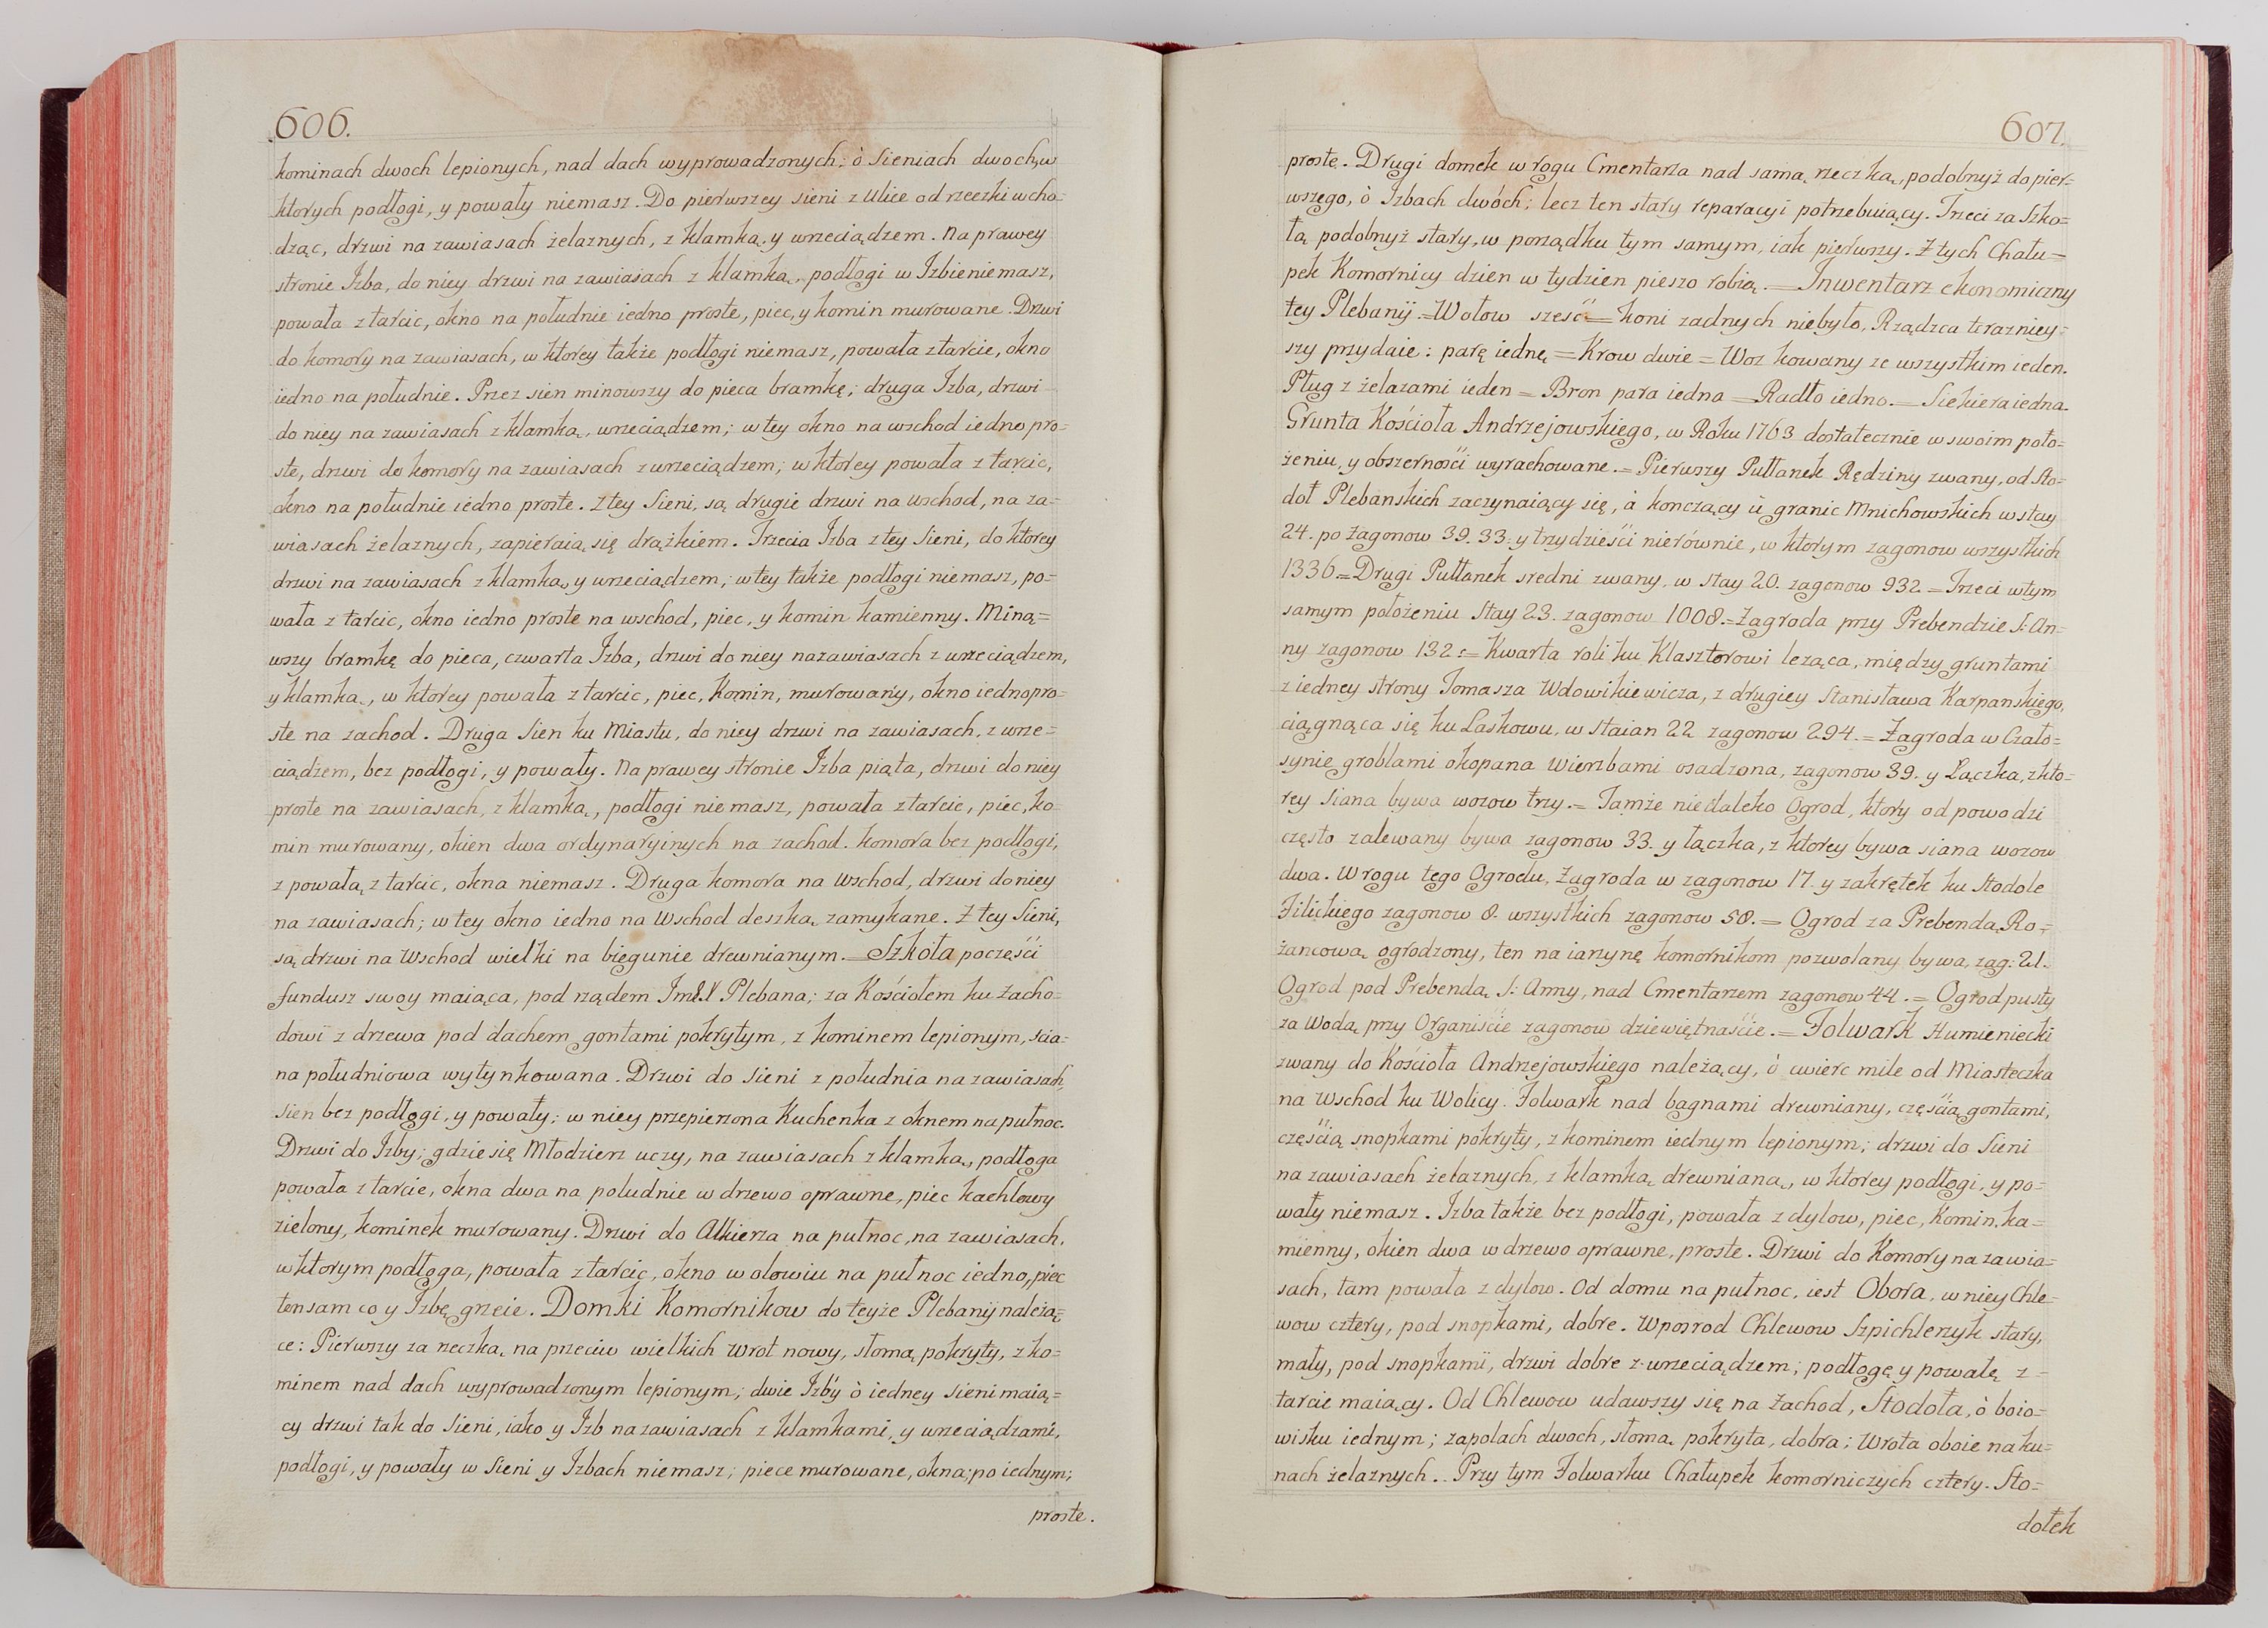 606.
kominach dwoch lepionych, nad dach wyprowadzonych; ò Sieniach dwoch, w
ktorych podłogi, y powały niemasz. Do pierwszey sieni z Ulice od rzeczki wcho=
dząc, drzwi na zawiasach żelaznych, z klamką, y wrzeciądzem. Na prawey
stronie Izba, do niey drzwi na zawiasach z klamką, podłogi w Izbie niemasz,
powała z tarcic, okno na południe iedno proste, piec, y komin murowane. Drzwi
do komory na zawiasach, w ktorey także podłogi niemasz, powała z tarcic, okno
iedno na południe. Przez sien minowszy do pieca bramkę; druga Izba, drzwi
do niey na zawiasach z klamką, wrzeciądzem; w tey okno na wschod iedno pro=
ste, drzwi do komory na zawiasach z wrzeciądzem; w ktorey powała z tarcic,
okno na południe iedno proste. Z tey Sieni, są drugie drzwi na Wschod, na za=
wiasach żelaznych, zapieraią się drążkiem. Trzecia Izba z tey Sieni, do ktorey
drzwi na zawiasach z klamką, y wrzeciądzem; w tey także podłogi niemasz, po=
wała z tarcic, okno iedno proste na wschod, piec, y komin kamienny. Miną=
wszy bramkę do pieca, czwarta Izba, drzwi do niey na zawiasach z wrzeciądzem,
y klamką, w ktorey powała z tarcic, piec, Komin, murowany, okno iedno pro=
ste na zachod. Druga Sien ku Miastu, do niey drzwi na zawiasach, z wrze=
ciądzem, bez podłogi, y powały. Na prawey stronie Izba piąta, drzwi do niey
proste na zawiasach, z klamką, podłogi niemasz, powała z tarcic, piec, ko=
min murowany, okien dwa ordynaryinych na zachod. Komora bez podłogi,
z powałą z tarcic, okna niemasz. Druga komora na Wschod, drzwi do niey
na zawiasach; w tey okno iedno na Wschod deszką zamykane. Z tey Sieni,
są drzwi na Wschod wielki na biegunie drewnianym. = Szkoła poczęści
fundusz swoy maiąca, pod rządem Plebana; za Kościołem ku Zacho=
dowi z drzewa pod dachem gontami pokrytym, z kominem lepionym, scia=
na południowa wytynkowana. Drzwi do Sieni z południa na zawiasach,
sien bez podłogi, y powały; w niey przepierzona Kuchenka z oknem na pułnoc.
Drzwi do Izby; gdzie się Młodzierz uczy, na zawiasach z klamką, podłoga
powała z tarcic, okna dwa na południe w drzewo oprawne, piec kachlowy
zielony, kominek murowany. Drzwi do Alkierza na pułnoc, na zawiasach,
w ktorym podłoga, powała z tarcic, okno w olowiu na pułnoc iedno, piec
ten sam co y Izbę grzeie. Domki Komornikow do teyże Plebanij należą=
ce: Pierwszy za rzeczką, na przeciw wielkich Wrot nowy, słomą pokryty, z ko=
minem nad dach wyprowadzonym lepionym; dwie Izby ò iedney Sieni maią=
cy drzwi tak do Sieni, iako y Izb na zawiasach z klamkami, y wrzeciądzami,
podłogi, y powały w Sieni y Izbach niemasz; piece murowane, okna; po iednym;
proste.
607.
proste. Drugi domek w rogu Cmentarza nad samą rzeczką, podobnyż do pier=
wszego, ò Izbach dwóch; lecz ten stary reparacyi potrzebuiący. Trzeci za Szko=
łą podobnyż stary, w porządku tym samym, iak pierwszy. Z tych Chału=
pek Komornicy dzien w tydzien pieszo robią. = Inwentarz ekonomiczny
tey Plebanij. = Wołow sześć = Koni żadnych niebyło, Rządzca teraznieÿ=
szy przydaie: parę iednę = Krow dwie = Woz kowany ze wszystkim ieden.
Pług z żelazami ieden = Bron para iedna = Radło iedno. = Siekiera iedna.
Grunta Kościoła Andrzejowskiego, w Roku 1763 dostatecznie w swoim poło=
żeniu, y obszerności wyrachowane. = Pierwszy Pułłanek Rędziny zwany, od Sto=
doł Plebanskich zaczynaiący się, à konczący ù granic Mnichowskich w stay
24. po Zagonow 39. 33. y trzydzieści nierównie, w ktorym zagonow wszystkich
1336. = Drugi Pułłanek sredni zwany, w stay 20. zagonow 932 = Trzeci w tym
samym położeniu Stay 23. zagonow 1008. = Zagroda przy Prebendzie S: An=
ny zagonow 132: = Kwarta roli ku Klasztorowi leząca, między gruntami
z iedney strony Tomasza Wdowikiewicza, z drugiey Stanisława Karpanskiego,
ciągnąca się ku Laskowu, w Staian 22 zagonow 294. = Zagroda w Czało=
synie groblami okopana wierzbami osadzona, zagonow 39. y Łączka, z kto=
rey Siana bywa wozow trzy. = Tamże niedaleko Ogrod, ktory od powodzi
często zalewany bywa zagonow 33. y łączka, z ktorey bywa siana wozow
dwa. W rogu tego Ogrodu, Zagroda w zagonow 17. y zakrętek ku Stodole
Filickiego zagonow 8. wszystkich zagonow 58. = Ogrod za Prebendą Ro=
żancową ogrodzony, ten na iarzynę komornikom pozwolany bywa, zag: 21.
Ogrod pod Prebendą S: Anny, nad Cmentarzem zagonow 44. = Ogrod pusty
za Wodą przy Organiście zagonow dziewiętnaście. = Folwark Humieniecki
zwany do Kościoła Andrzejowskiego należący, ò cwierc mile od Miasteczka
na Wschod ku Wolicy. Folwark nad bagnami drewniany, częścią gontami,
częścią snopkami pokryty, z kominem iednym lepionym; drzwi do Sieni
na zawiasach żelaznych, z klamką drewnianą, w ktorey podłogi, y po=
wały niemasz. Izba także bez podłogi, powała z dylow, piec, Komin, ka=
mienny, okien dwa w drzewo oprawne, proste. Drzwi do Komory na zawia=
sach, tam powała z dylow. Od domu na pułnoc, iest Obora, w niey Chle=
wow cztery, pod snopkami, dobre. Wposrod Chlewow Szpichlerzyk stary,
mały, pod snopkami, drzwi dobre z wrzeciądzem; podłogę y powałę z =
tarcic maiący. Od Chlewow udawszy się na Zachod, Stodoła, ò boio=
wisku iednym; zapolach dwoch, słomą pokryta, dobra; Wrota oboie na ku=
nach żelaznych.. Przy tym Folwarku Chałupek komorniczych cztery. Sto=
dołek